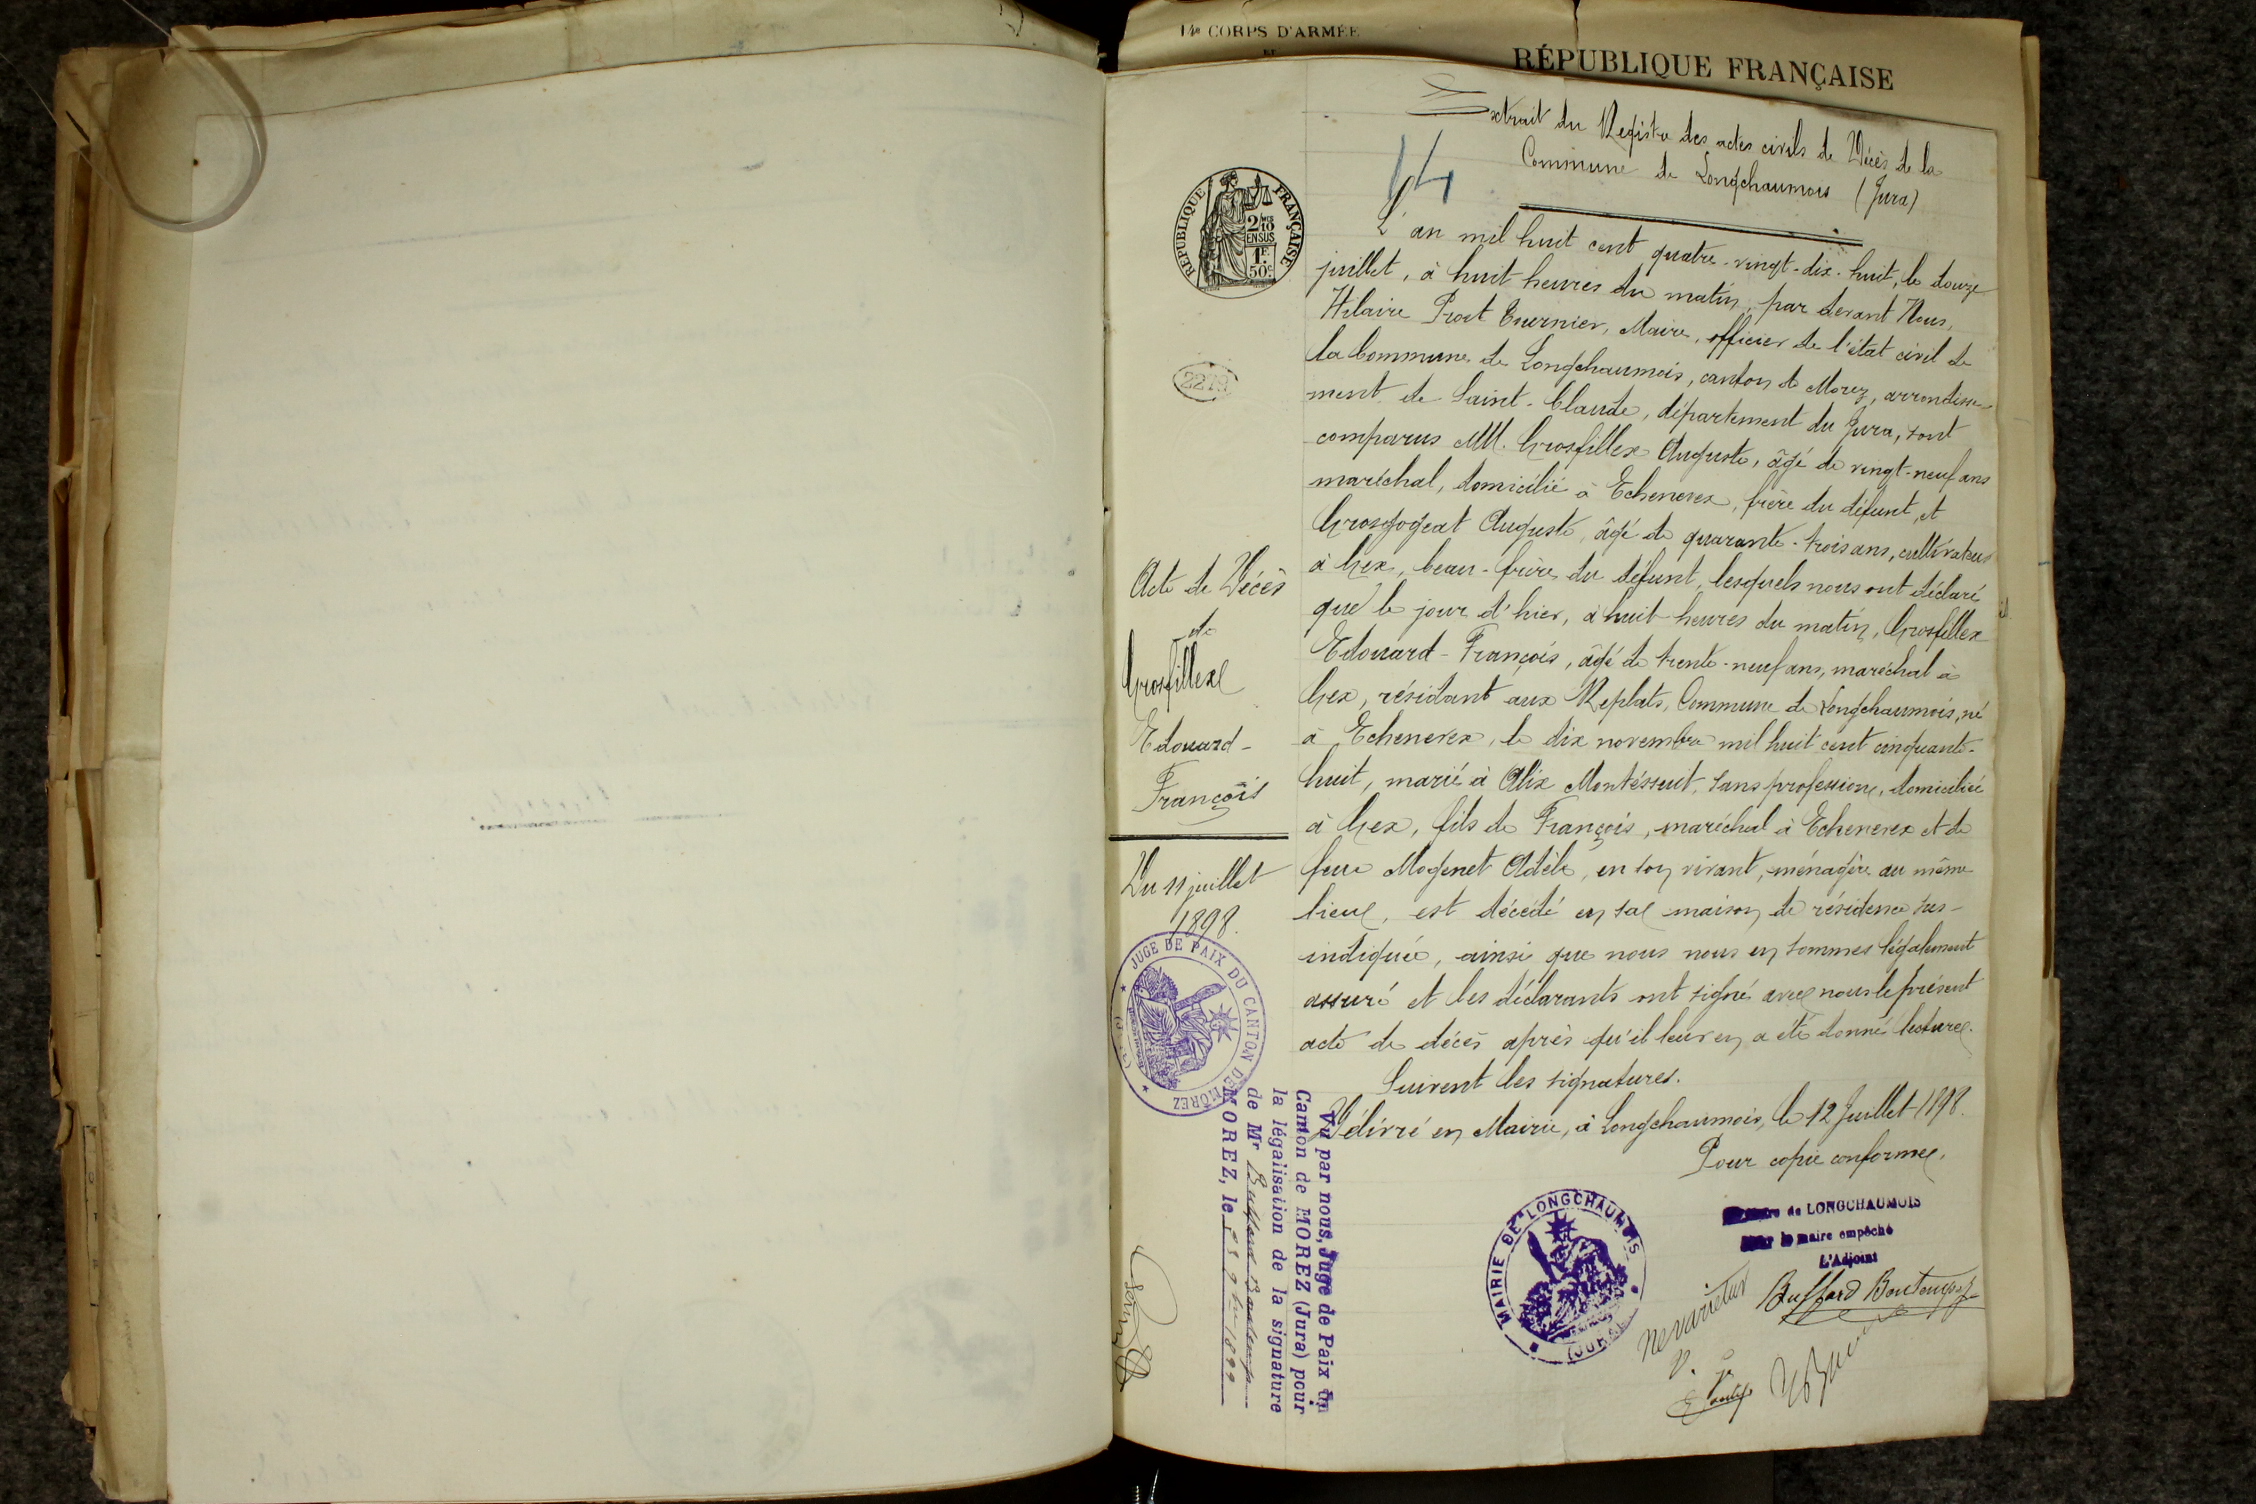 14e CORPS D'ARMÉE
RÉPUBLIQUE FRANÇAISE
Extrait du Registre des actes civils de Décès de la
Commune de Longchaumois (Jura)
14
RÉPUBLIQUE FRANÇAISE
2/10 EN SUS
1F. 50c
2279
L'an mil huit cent quatre-vingt-dix-huit, le douze
juillet, à huit heures du matin, par devant Nous,
Hilaire Prost Tournier, Maire, officier de l'état civil de
la Commune de Longchaumois, canton de Morez, arrondisse-
ment de Saint-Claude, département du Jura, sont
comparus MM. Grosfillex Auguste, âgé de vingt-neuf ans
maréchal, domicilié à Echenevex, frère du défunt, et
Grosgogeat Auguste, âgé de quarante-trois ans, cultivateur
à Gex, beau-frère du défunt, lesquels nous ont déclaré
que le jour d'hier, à huit heures du matin, Grosfillex
Edouard-François, âgé de trente-neuf ans, maréchal à
Gex, résidant aux Replats, Commune de Longchaumois, né
à Echenevex, le dix novembre mil huit cent cinquante-
huit, marié à Alix Montéssuit, sans profession, domiciliée
à Gex, fils de François, maréchal à Echenevex et de
feue Mogenet Adèle, en son vivant, ménagère au même
lieu, est décédé en sa maison de résidence sus-
indiquée, ainsi que nous nous en sommes légalement
assuré et les déclarants ont signé avec nous le présent
acte de décès après qu'il leur en a été donné lecture.
Suivent les signatures.
Délivré en Mairie, à Longchaumois, le 12 Juillet 1898.
Pour copie conforme,
Acte de Décès
de
Grosfillex
Edouard-
François
Du 11 juillet
1898.
JUGE DE PAIX DU CANTON DE MOREZ
(JURA)
Vu par nous, Juge de Paix du
Canton de MOREZ (Jura) pour
la légalisation de la signature
de Mr Buffard Bontemps
MOREZ, le 9bre 1899
MAIRIE DE LONGCHAUMOIS
(JURA)
Maire de LONGCHAUMOIS
Pour le maire empêché
L'Adjoint
Buffard Bontemps
Ne varietur